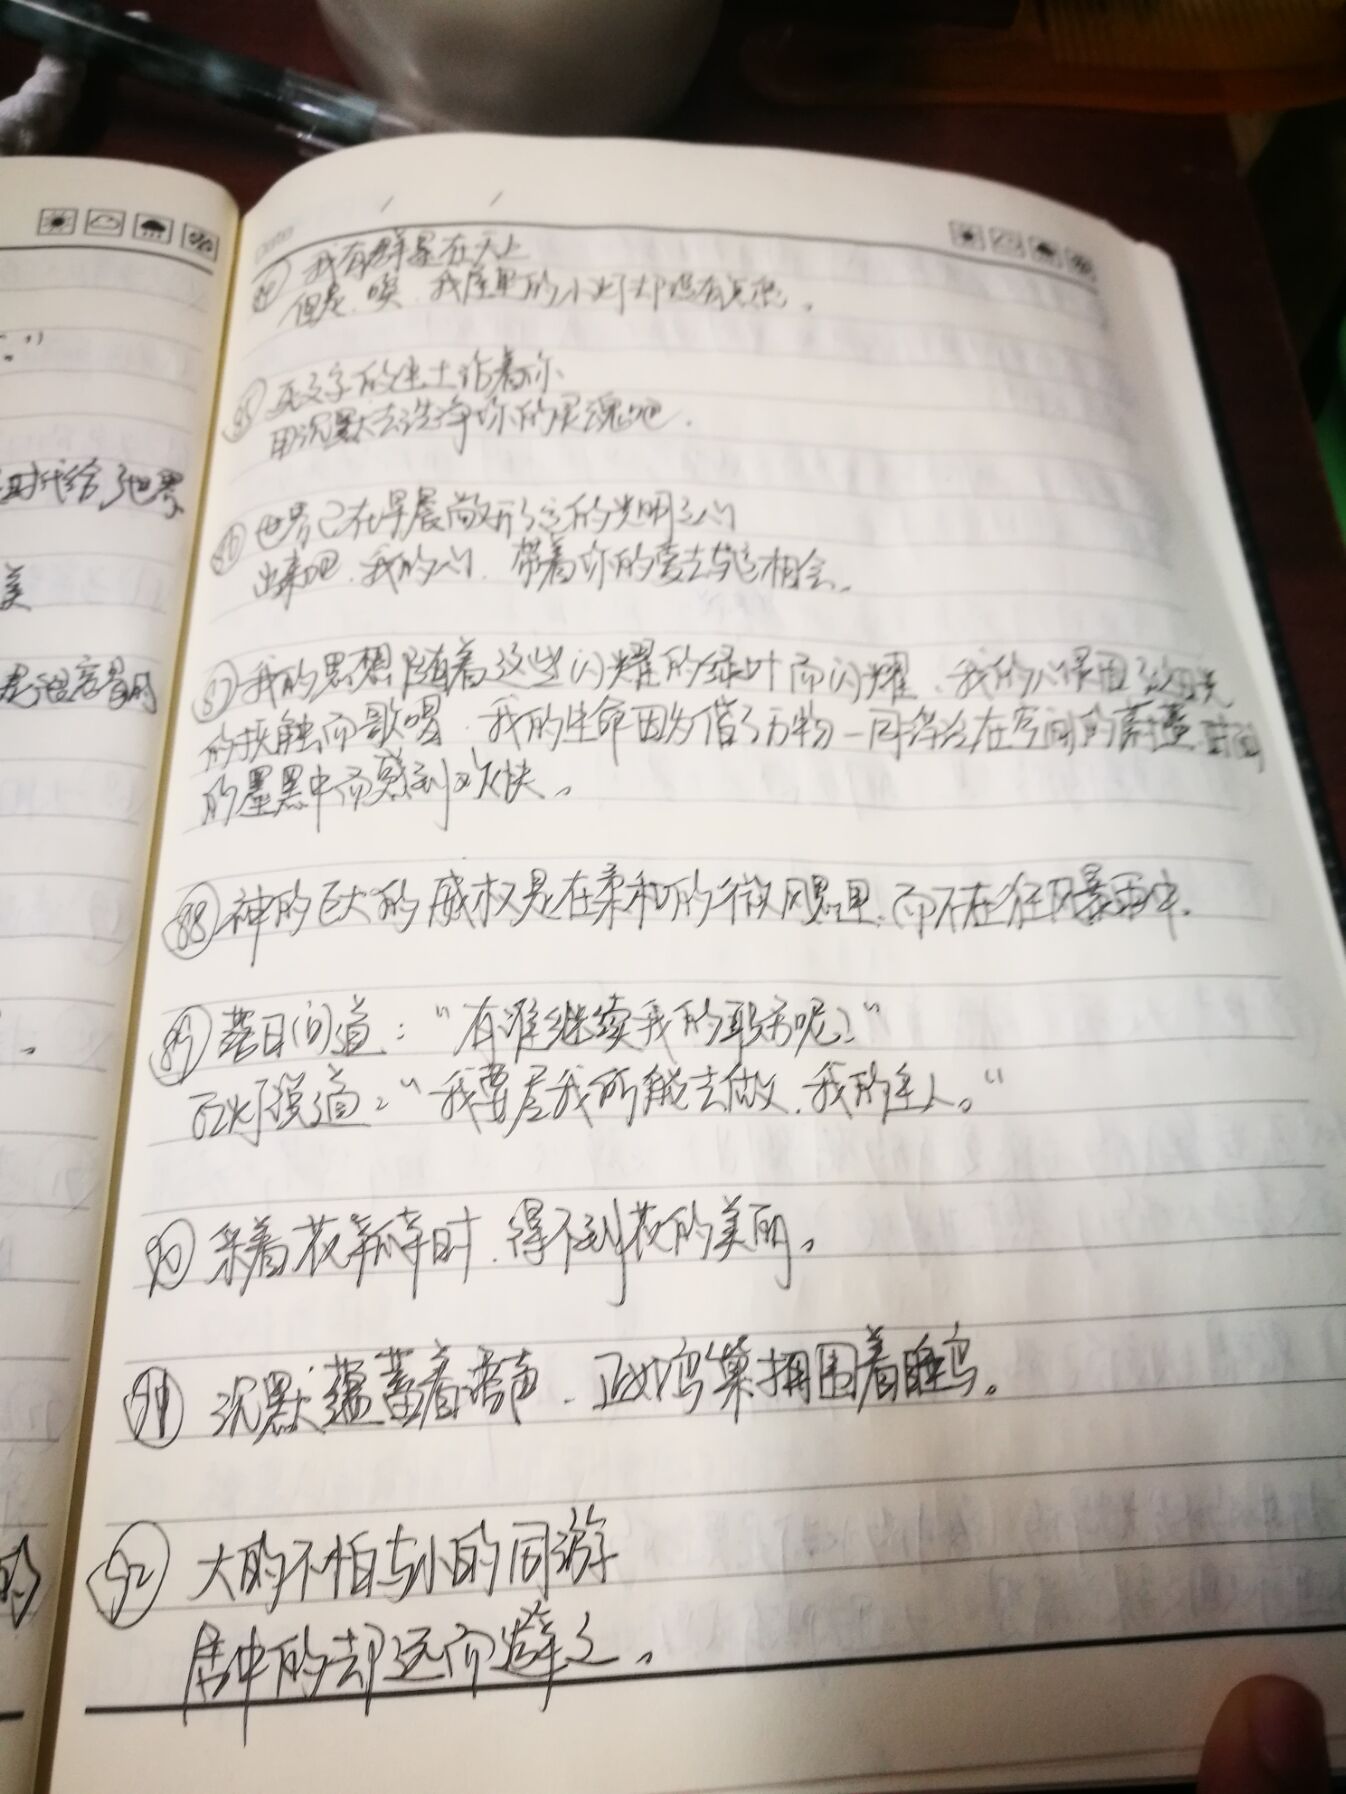 美
Date
84 我有群星在天上
但是,唉,我屋里的小灯却没有点亮。
85 死文字的尘土沾着你
用沉默去洗净你的灵魂吧。
86 世界已在早晨敞开了它的光明之心
出来吧,我的心,带着你的爱去与它相会。
87 我的思想随着这些闪耀的绿叶而闪耀,我的心
的抚触而歌唱,我的生命因为偕了万物一同浮泛在空间的蔚蓝,时间
的墨黑中而感到欢快。
88 神的巨大的威权是在柔和的微飔里,而不在狂风暴雨中。
89 落日问道:“有谁继续我的职务呢?”
瓦灯说道:“我要尽我所能去做,我的主人。”
90 采着花瓣时,得不到花的美丽。
91 沉默蕴蓄着语声,正如鸟巢拥围着睡鸟。
92 大的不怕与小的同游
居中的却远而避之。